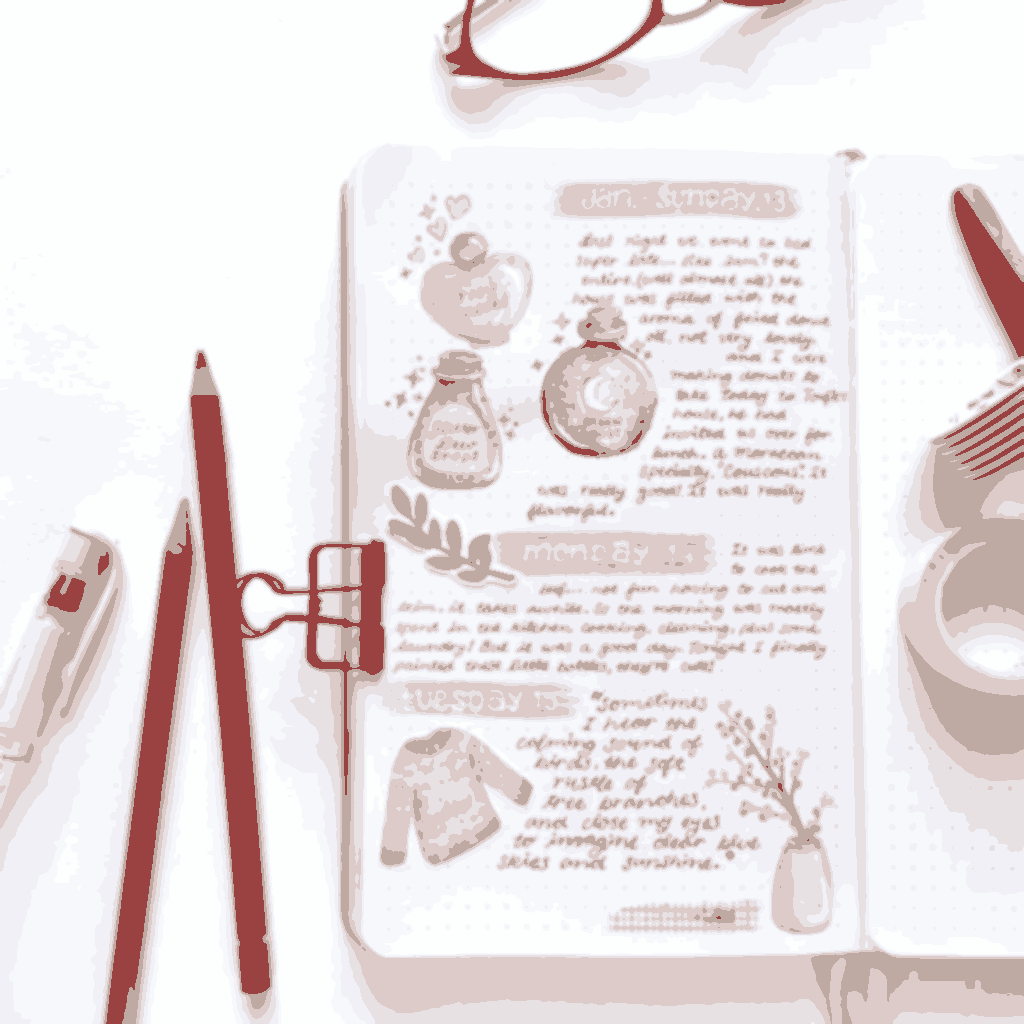 Jan. Sunday 13
last night we went to bed
super late... like 2am? the
entire (well almost all) the
house was filled with the
aroma of fried donuts
not very lovely
and I were
making donuts to
take today to
house, he had
invited us over for
lunch, a Moroccan
specialty "Couscous". It
was really good! It was really
flavorful.
monday 13
It was time
to cook the
not fun having to cut and
trim, it takes awhile. So the morning was mostly
spent in the kitchen cooking, cleaning, and some
laundry! But it was a good day. Tonight I finally
painted these little bottles, they're cute!
tuesday 15
"Sometimes
I hear the
calming sound of
birds, the soft
rustle of
tree branches,
and close my eyes
to imagine clear blue
skies and sunshine."